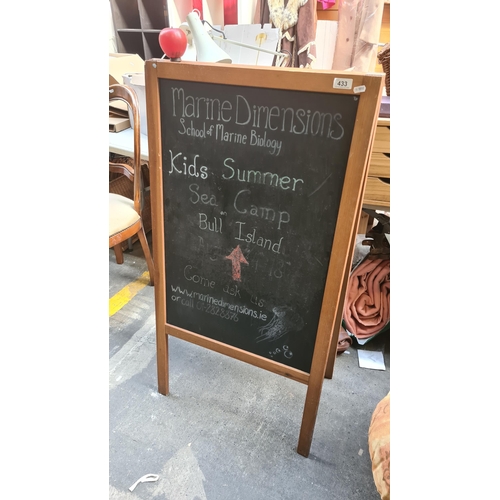 433
Marine Dimensions
School of Marine Biology
Kids Summer
Sea Camp
Bull Island
Come ask us
www.marinedimensions.ie
or call